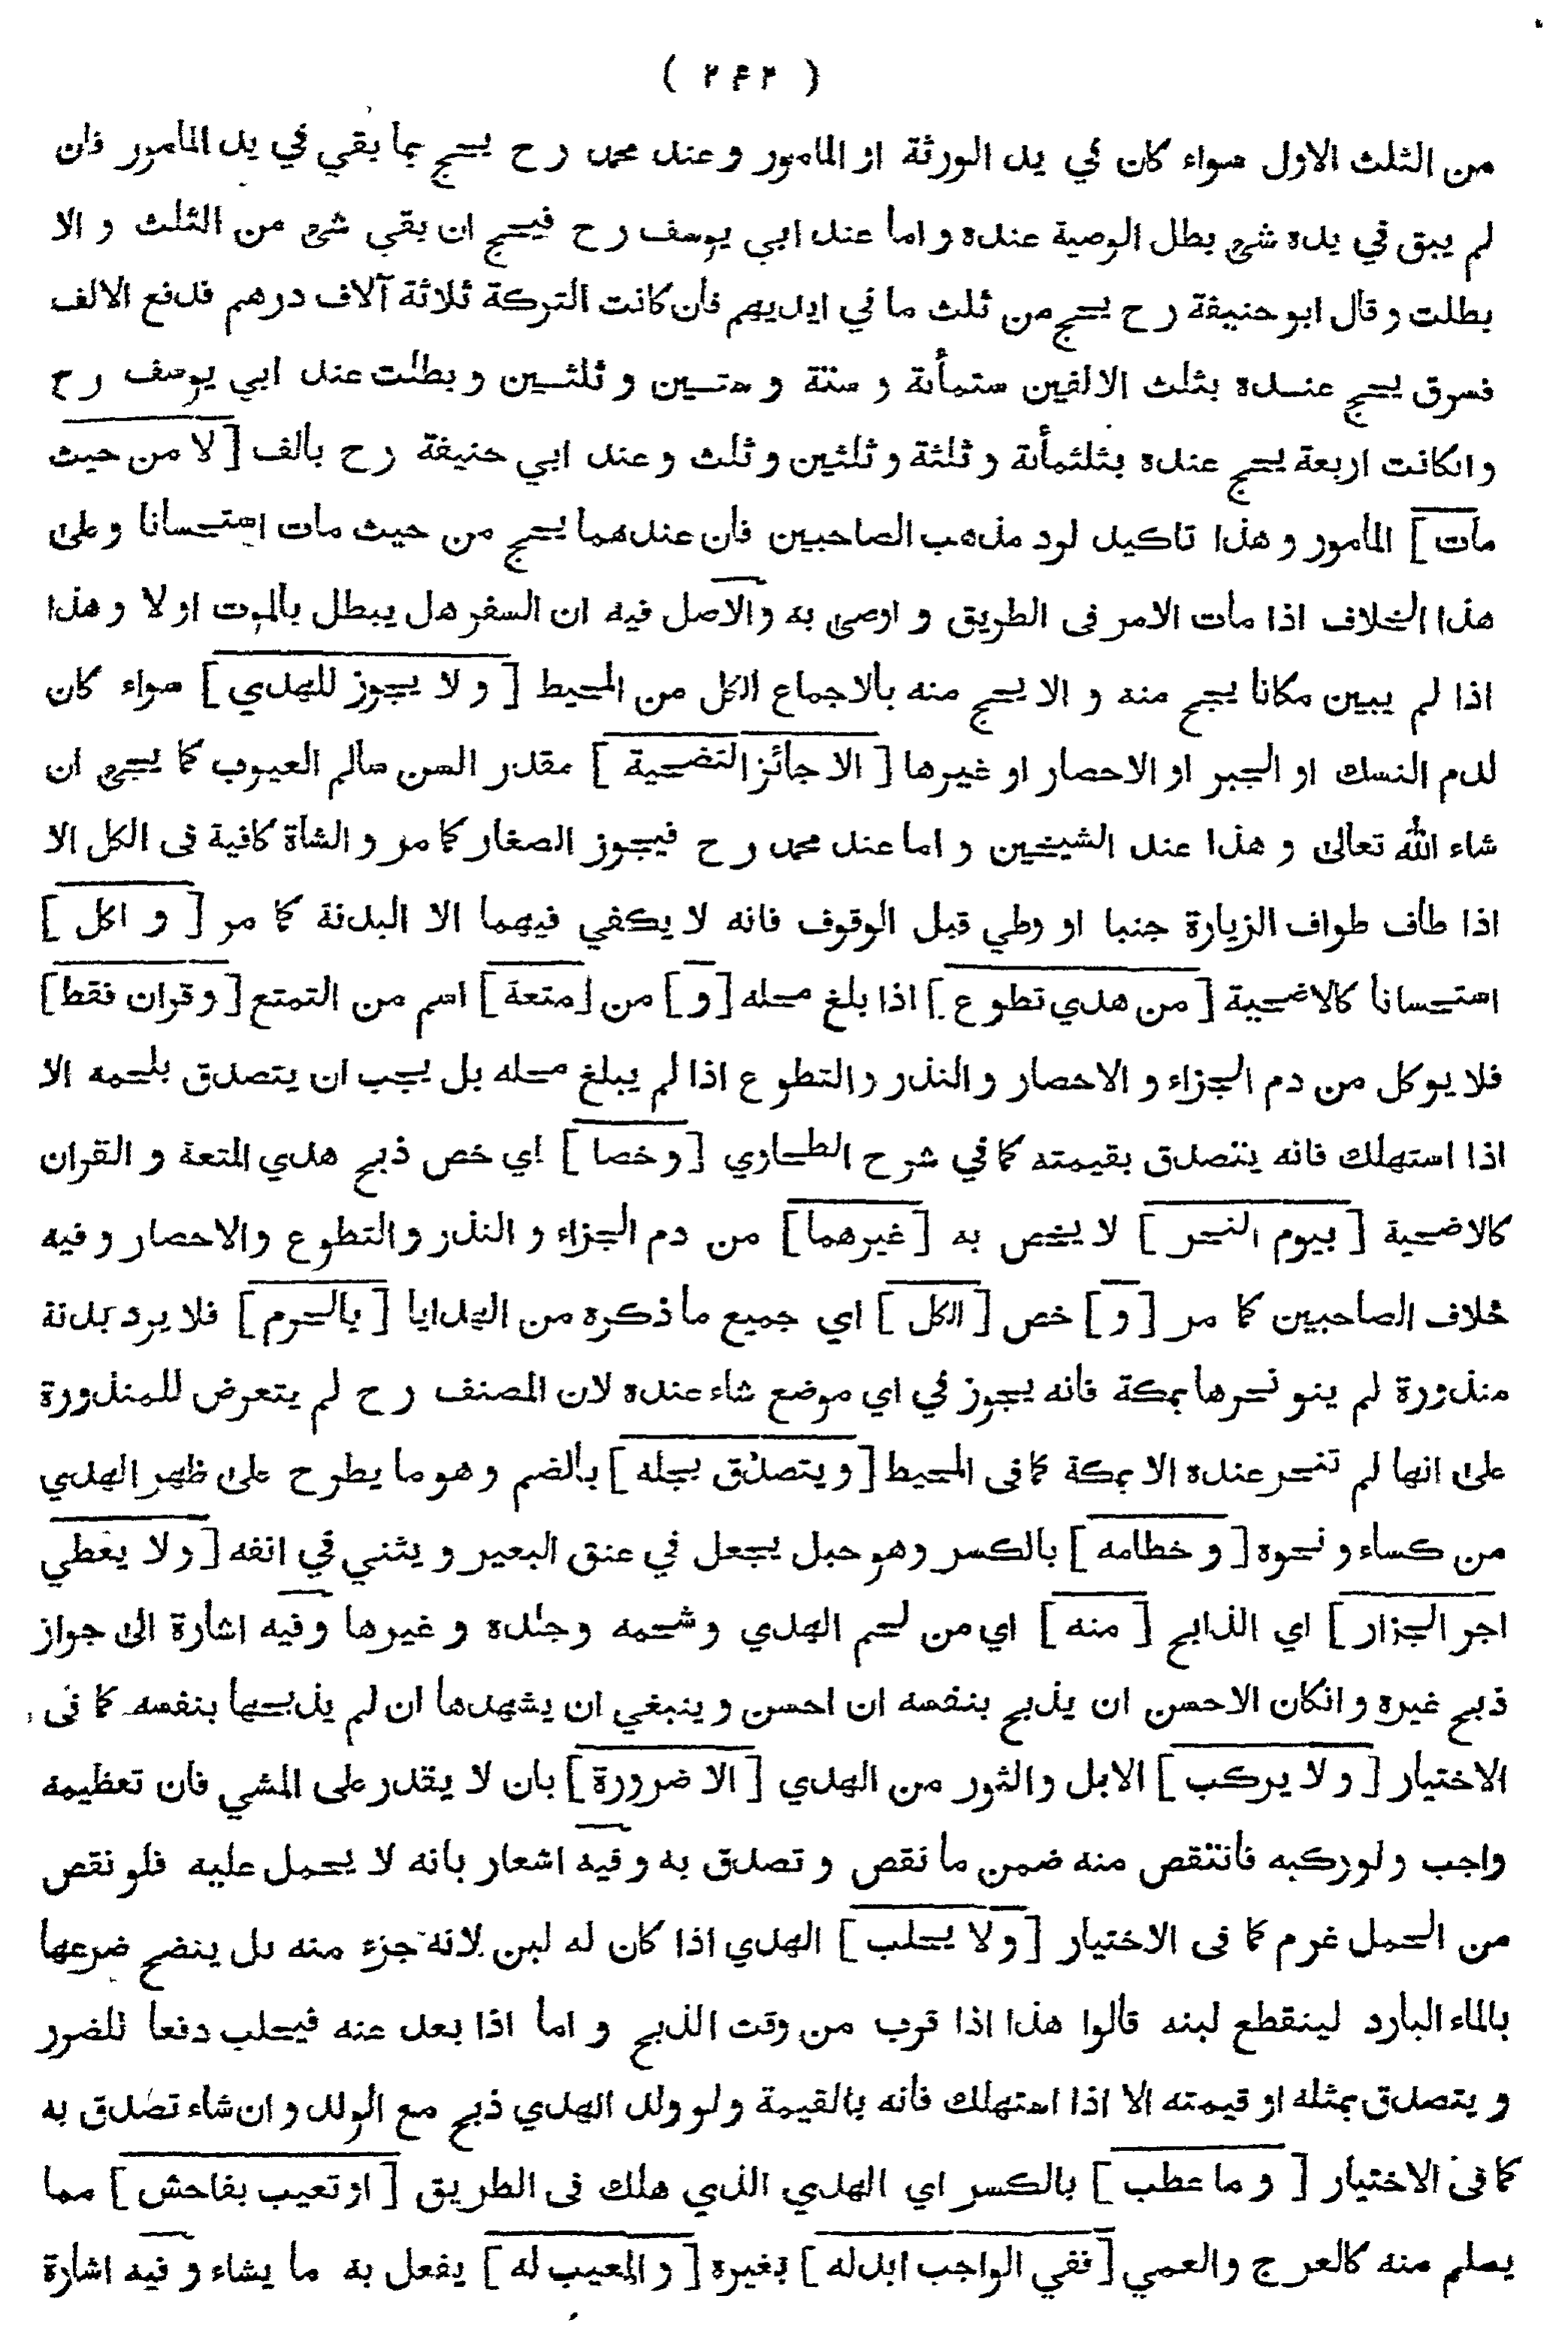 ( ٢۴٢ )
من الثلث الاول سواء كان في يد الورثة او المامور وعند محمد رح يحج بما بقي في يد المأمور فان
لم يبق في يده شيء بطل الوصية عنده واما عند ابي يوسف رح فيحج ان بقي شيء من الثلث و الا
بطلت وقال ابو حنيفة رح يحج من ثلث ما في ايديهم فان كانت التركة ثلاثة آلاف درهم فدفع الالف
فسرق يحج عنده بثلث الالفين ستمأئة و ستة و ستين و ثلثين و بطلت عند ابي يوسف رح
وانكانت اربعة يحج عنده بثلثمأئة و ثلثة و ثلثين و ثلث و عند ابي حنيفة رح بالف [ لا من حيث
مات ] المأمور و هذا تاكيد لرد مذهب الصاحبين فان عندهما يحج من حيث مات استحسانا وعلى
هذا الخلاف اذا مات الامر فى الطريق و اوصى به والاصل فيه ان السفر هل يبطل بالموت اولا وهذا
اذا لم يبين مكانا يحج منه و الا يحج منه بالاجماع الكل من المحيط [ و لا يجوز للهدي ] سواء كان
لدم النسك او الجبر او الاحصار او غيرها [ الا جائز التضحية ] مقدر السن سالم العيوب كما يجيء ان
شاء الله تعالى و هذا عند الشيخين و اما عند محمد رح فيجوز الصغار كما مر و الشاة كافية فى الكل الا
اذا طاف طواف الزيارة جنبا او وطي قبل الوقوف فانه لا يكفي فيهما الا البدنة كما مر [ و اكل ]
استحسانا كالاضحية [ من هدي تطوع ] اذا بلغ محله [ و ] من [ متعة ] اسم من التمتع [ وقران فقط ]
فلا يوكل من دم الجزاء و الاحصار و النذر والتطوع اذا لم يبلغ محله بل يجب ان يتصدق بلحمه الا
اذا استهلك فانه يتصدق بقيمته كما في شرح الطحاوي [ وخصا ] اي خص ذبح هدي المتعة و القران
كالاضحية [ بيوم النحر ] لا يخص به [ غيرهما ] من دم الجزاء و النذر والتطوع والاحصار وفيه
خلاف الصاحبين كما مر [ و ] خص [ الكل ] اي جميع ما ذكره من الهدايا [ بالحرم ] فلا يرد بدنة
منذورة لم ينو نحرها بمكة فانه يجوز في اي موضع شاء عنده لان المصنف رح لم يتعرض للمنذورة
على انها لم تنحر عنده الا بمكة كما فى المحيط [ ويتصدق بجله ] بالضم وهو ما يطرح على ظهر الهدي
من كساء و نحوه [ و خطامه ] بالكسر وهو حبل يجعل في عنق البعير و يثني في انفه [ ولا يعطي
اجر الجزار ] اي الذابح [ منه ] اي من لحم الهدي و شحمه وجلده و غيرها وفيه اشارة الى جواز
ذبح غيره وانكان الاحسن ان يذبح بنفسه ان احسن و ينبغي ان يشهدها ان لم يذبحها بنفسه كما فى
الاختيار [ و لا يركب ] الابل والثور من الهدي [ الا ضرورة ] بان لا يقدر على المشي فان تعظيمه
واجب ولو ركبه فانتقص منه ضمن ما نقص و تصدق به وفيه اشعار بانه لا يحمل عليه فلو نقص
من الحمل غرم كما فى الاختيار [ ولا يحلب ] الهدي اذا كان له لبن لانه جزء منه بل ينضح ضرعها
بالماء البارد لينقطع لبنه قالوا هذا اذا قرب من وقت الذبح و اما اذا بعد عنه فيحلب دفعا للضرر
و يتصدق بمثله او قيمته الا اذا استهلك فانه بالقيمة ولو ولد الهدي ذبح مع الولد وان شاء تصدق به
كما فى الاختيار [ و ما عطب ] بالكسر اي الهدي الذي هلك فى الطريق [ او تعيب بفاحش ] مما
يصلم منه كالعرج والعمي [ ففي الواجب ابدله ] بغيره [ و المعيب له ] يفعل به ما يشاء وفيه اشارة